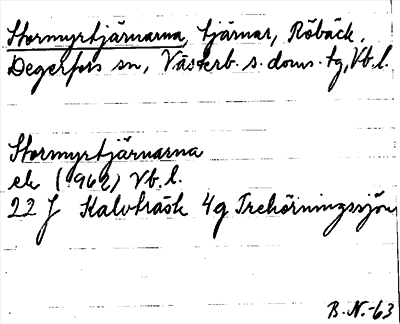 Stormyrtjärnarna, tjärnar, Röbäck,
Degerfors sn, Västerb. s. doms. tg, Vb. l.
Stormyrtjärnarna
ek (1962) Vb. l.
22 J Kalvträsk 4g Trehörningssjön
B.N.-63